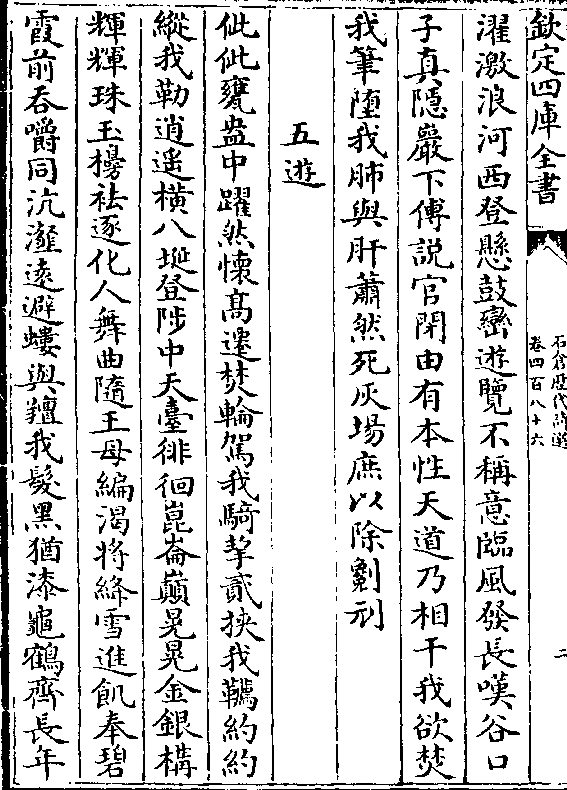 欽定四庫全書
石倉歷代詩選
卷四百八十六
二
濯激浪河西登懸鼓巒遊覽不稱意臨風發長嘆谷口
子真隱巖下傅説官閉由有本性天道乃相干我欲焚
我筆墮我肺與肝蕭然死灰場庶以除劓刖
五遊
仳仳甕盎中躍然懷髙遷焚輪駕我騎挈貳挾我韉約約
縱我勒逍遥橫八埏登陟中天臺徘徊崑崙巔晃晃金銀構
輝輝珠玉㯭袪逐化人舞曲隨王母編渴將絳雪進飢奉碧
霞前吞嚼同沆瀣逺避螻與羶我髮黑猶漆龜鶴齊長年